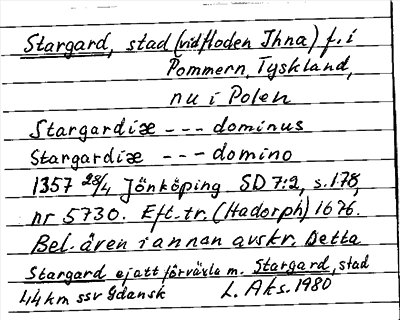 Stargard, stad (vid floden Ihna) f. i
Pommern, Tyskland,
nu i Polen
Stargardiæ --- dominus
Stargardiæ --- domino
1357 28/4 Jönköping SD 7:2, s. 178,
nr 5730. Eft. tr. (Hadorph) 1676.
Bel. även i annan avskr. Detta
Stargard ej att förväxla m. Stargard, stad
44 km ssv Gdansk L. Aks. 1980